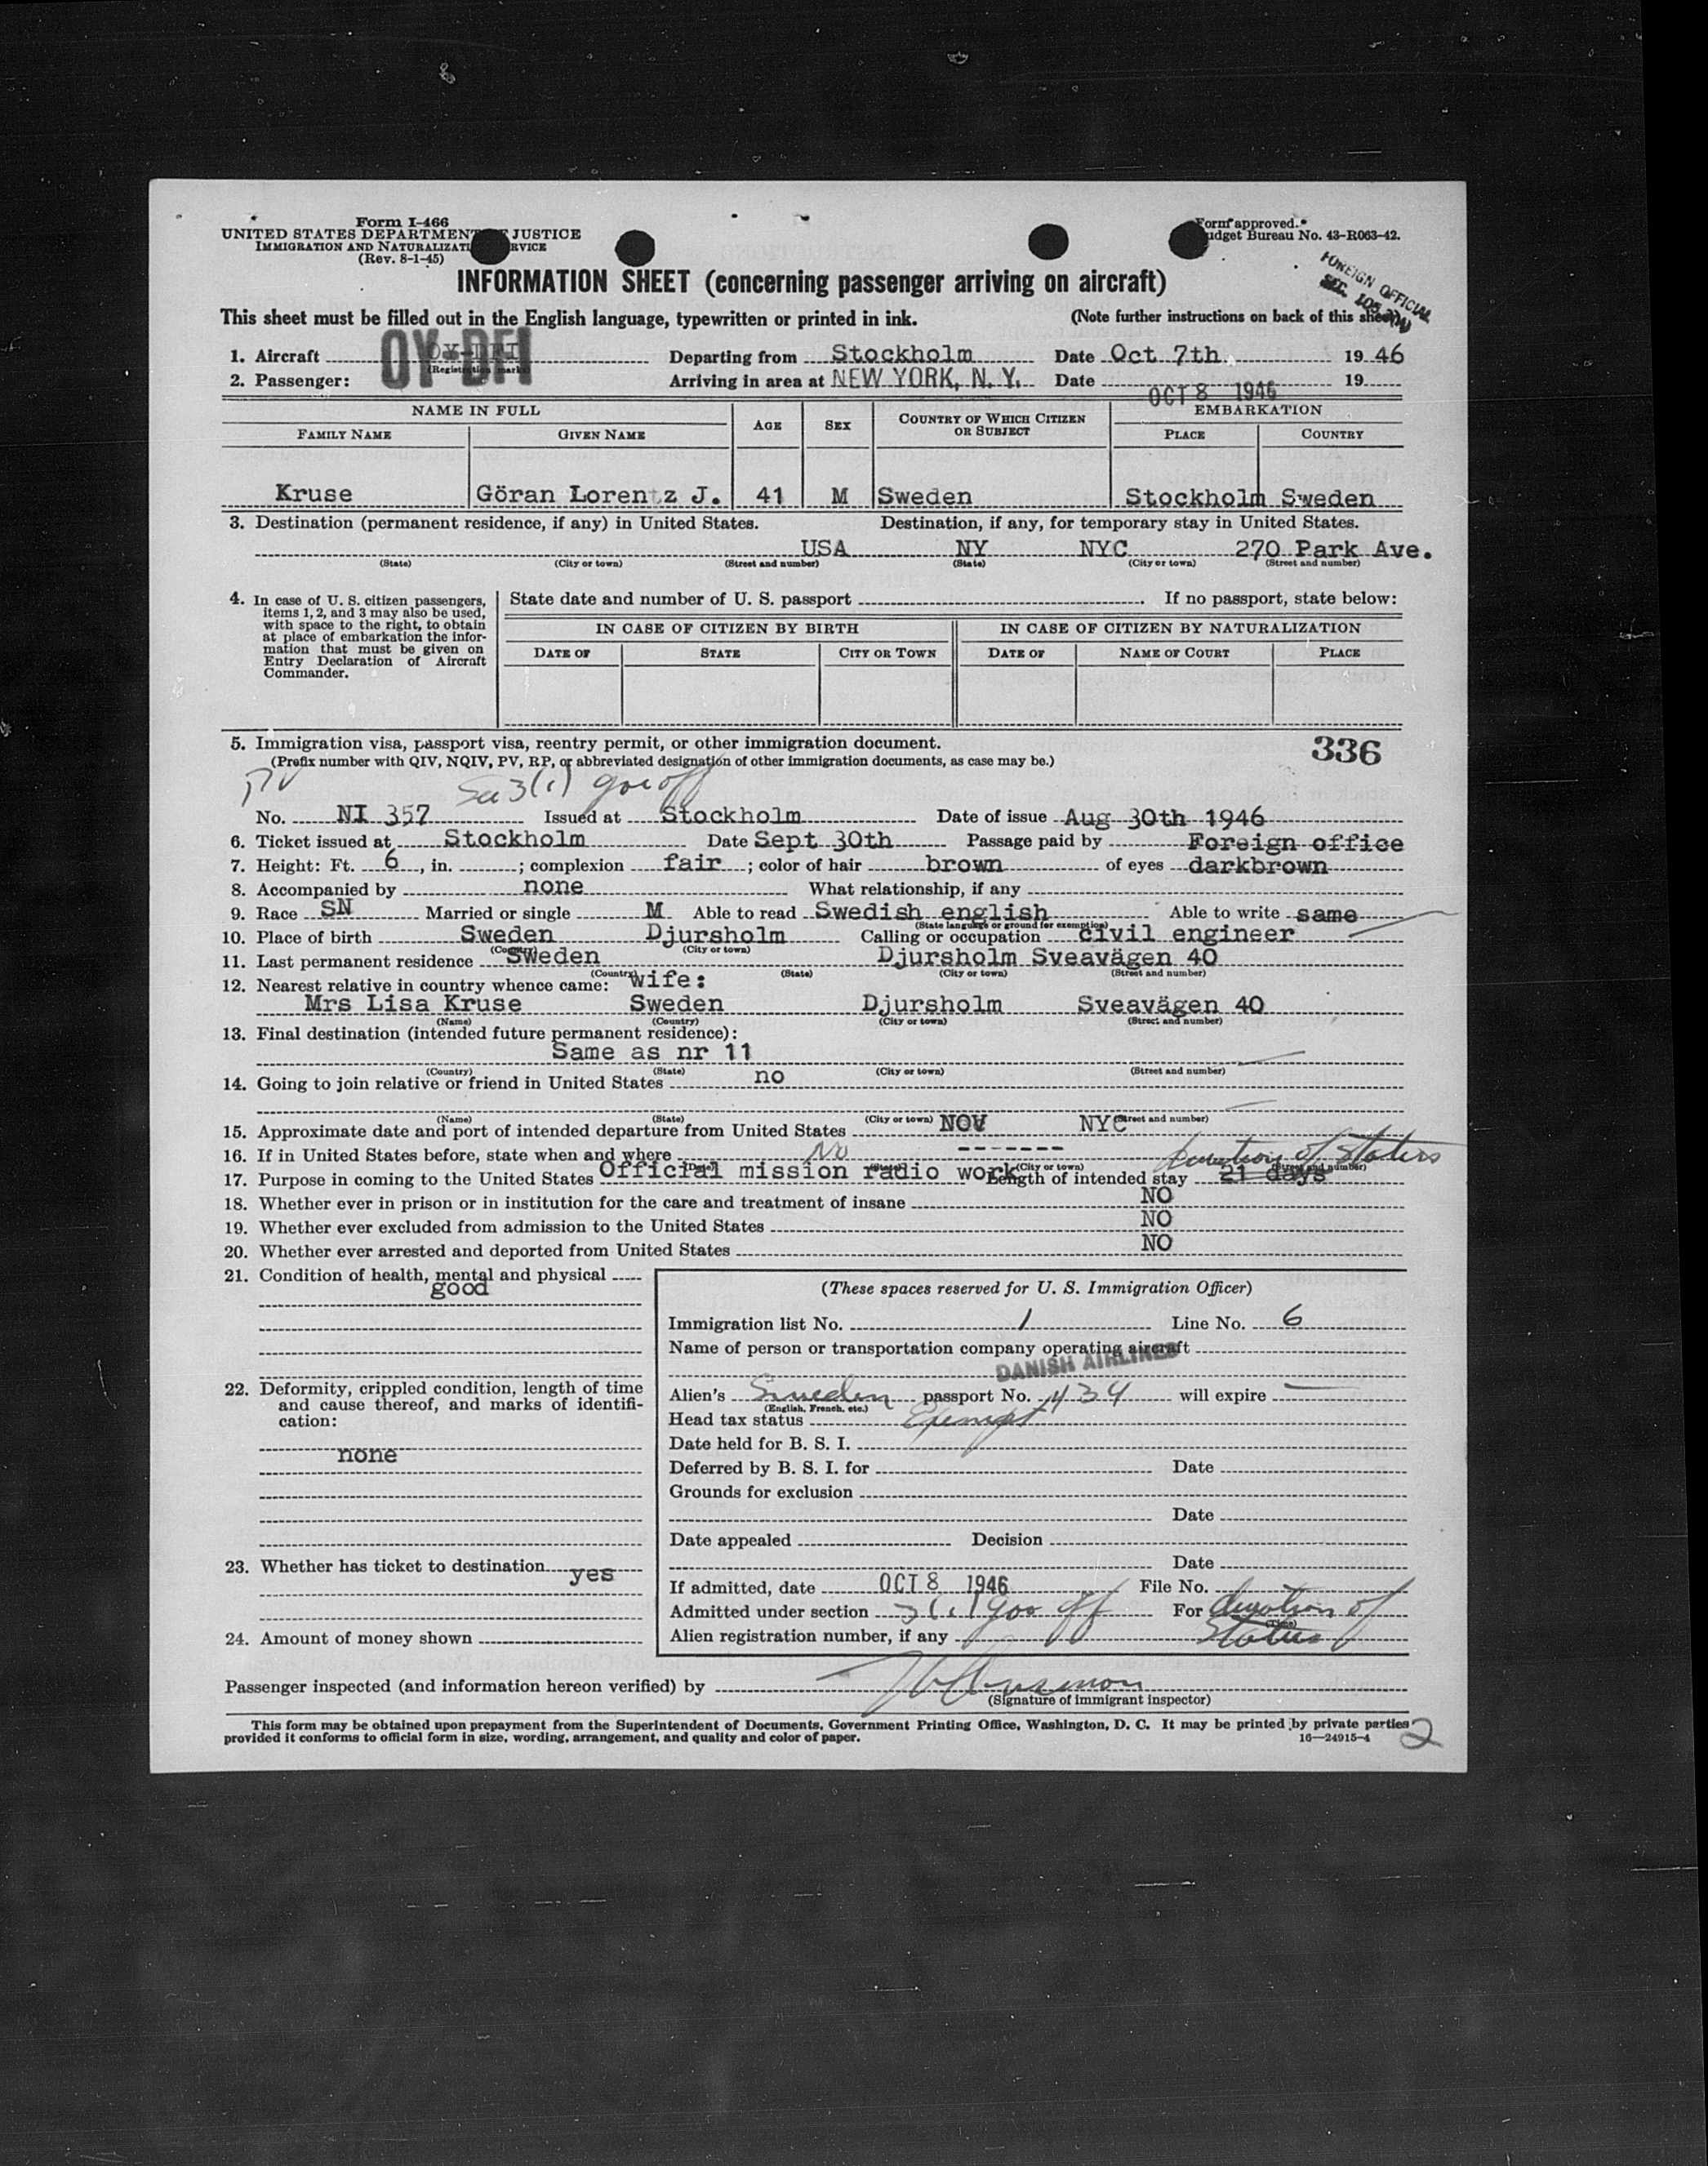 Form I-466
UNITED STATES DEPARTMENT JUSTICE
IMMIGRATION AND
(Rev. 8-1-45)
Form approved.
Budget Bureau No. 43-R063-42.
INFORMATION SHEET (concerning passenger arriving on aircraft)
FOREIGN OFFICIAL
This sheet must be filled out in the English language, typewritten or printed in ink. (Note further instructions on back of this sheet.)
1. Aircraft Departing from Stockholm Date Oct 7th 1946
(Registration marks)
2. Passenger: Arriving in area at NEW YORK, N. Y. Date OCT 8 1946 19
NAME IN FULL AGE SEX COUNTRY OF WHICH CITIZEN OR SUBJECT EMBARKATION
FAMILY NAME GIVEN NAME PLACE COUNTRY
Kruse Göran Lorentz J. 41 M Sweden Stockholm Sweden
3. Destination (permanent residence, if any) in United States. Destination, if any, for temporary stay in United States.
USA NY NYC 270 Park Ave.
(State) (City or town) (Street and number) (State) (City or town) (Street and number)
4. In case of U. S. citizen passengers, items 1, 2, and 3 may also be used, with space to the right, to obtain at place of embarkation the information that must be given on Entry Declaration of Aircraft Commander.
State date and number of U. S. passport . If no passport, state below:
IN CASE OF CITIZEN BY BIRTH IN CASE OF CITIZEN BY NATURALIZATION
DATE OF STATE CITY OR TOWN DATE OF NAME OF COURT PLACE
5. Immigration visa, passport visa, reentry permit, or other immigration document. 336
(Prefix number with QIV, NQIV, PV, RP, or abbreviated designation of other immigration documents, as case may be.)
PV 3(1) gov off
No. NI 357 Issued at Stockholm Date of issue Aug 30th 1946
6. Ticket issued at Stockholm Date Sept 30th Passage paid by Foreign office
7. Height: Ft. 6, in. ; complexion fair ; color of hair brown of eyes darkbrown
8. Accompanied by none What relationship, if any
9. Race SN Married or single M Able to read Swedish english Able to write same
(State language or ground for exemption)
10. Place of birth Sweden Djursholm Calling or occupation civil engineer
(Country) (City or town)
11. Last permanent residence Sweden Djursholm Sveavägen 40
(Country) (State) (City or town) (Street and number)
12. Nearest relative in country whence came: wife:
Mrs Lisa Kruse Sweden Djursholm Sveavägen 40
(Name) (Country) (City or town) (Street and number)
13. Final destination (intended future permanent residence):
Same as nr 11
(Country) (State) (City or town) (Street and number)
14. Going to join relative or friend in United States no
(Name) (State) (City or town) (Street and number)
15. Approximate date and port of intended departure from United States NOV NYC
16. If in United States before, state when and where No -------
(City or town) (Street and number)
duration of status
17. Purpose in coming to the United States Official mission radio work Length of intended stay 21 days
18. Whether ever in prison or in institution for the care and treatment of insane NO
19. Whether ever excluded from admission to the United States NO
20. Whether ever arrested and deported from United States NO
21. Condition of health, mental and physical
good
22. Deformity, crippled condition, length of time and cause thereof, and marks of identification:
none
23. Whether has ticket to destination yes
24. Amount of money shown
(These spaces reserved for U. S. Immigration Officer)
Immigration list No. 1 Line No. 6
Name of person or transportation company operating aircraft
DANISH AIRLINES
Alien's Sweden passport No. 434 will expire —
(English, French, etc.)
Head tax status Exempt
Date held for B. S. I.
Deferred by B. S. I. for Date
Grounds for exclusion
Date
Date appealed Decision
Date
If admitted, date OCT 8 1946 File No.
Admitted under section 3(1) gov off For duration of
(Time)
Alien registration number, if any status
Passenger inspected (and information hereon verified) by
(Signature of immigrant inspector)
This form may be obtained upon prepayment from the Superintendent of Documents, Government Printing Office, Washington, D. C. It may be printed by private parties
provided it conforms to official form in size, wording, arrangement, and quality and color of paper. 16—24915-4
2